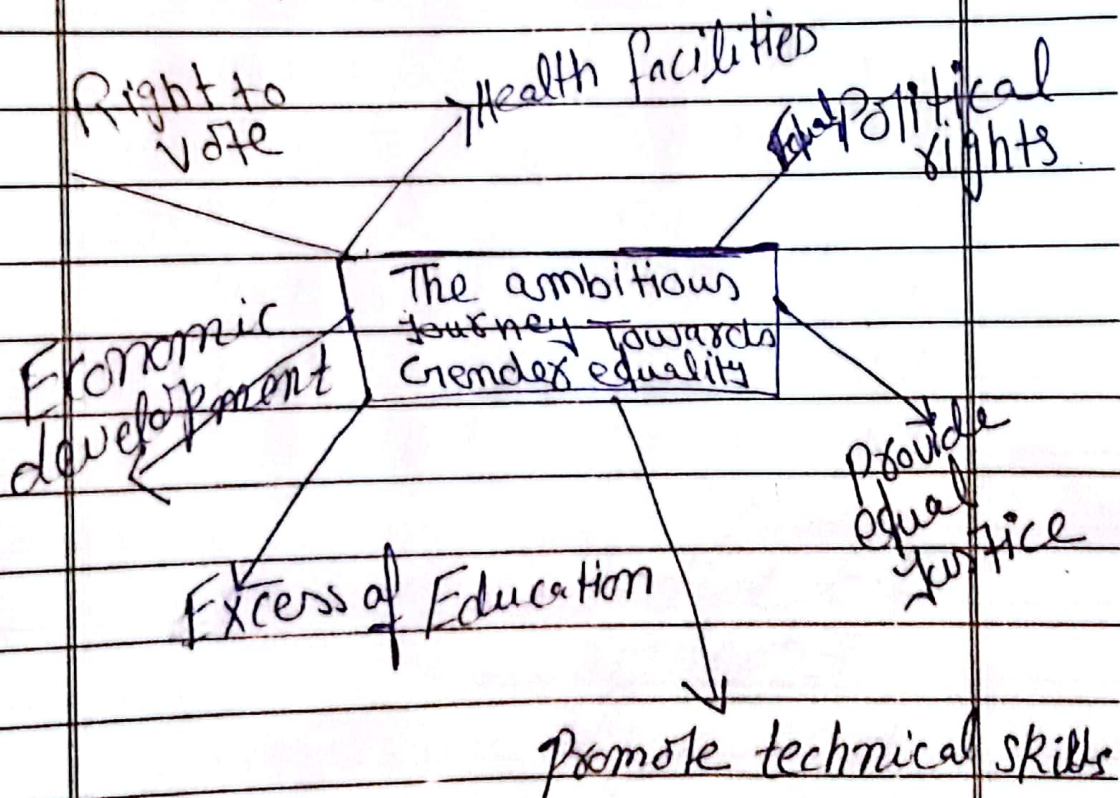 Right to
vote
Health facilities
Equal Political
rights
The ambitious
Journey Towards
Gender equality
Economic
development
Provide
equal
Justice
Excess of Education
Promote technical skills